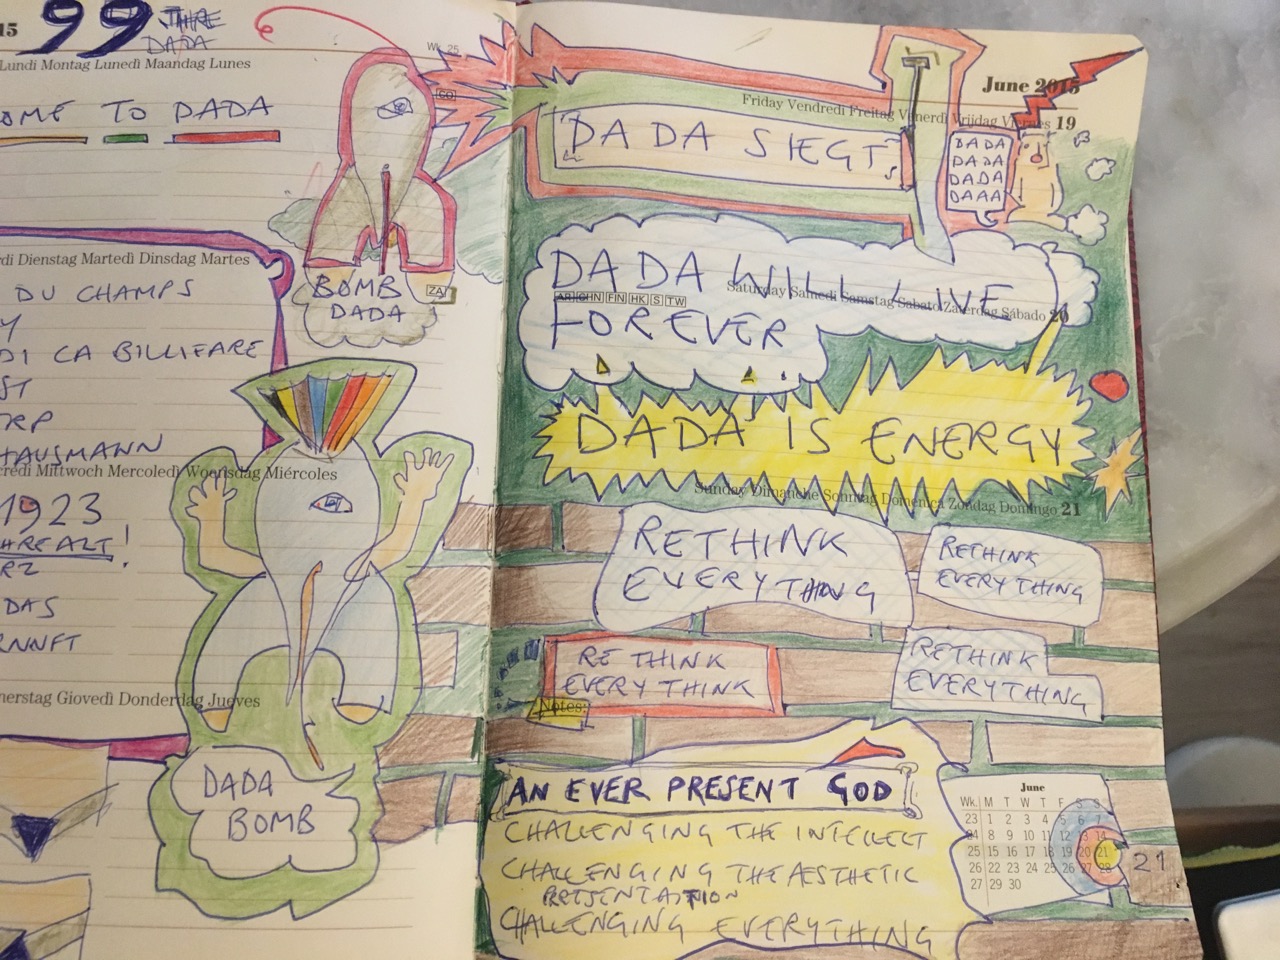 15
99 JAHRE
DADA
Lundi Montag Lunedì Maandag Lunes
Wk. 25
OME TO DADA
CO
BOMB
DADA
ZA
rdi Dienstag Martedì Dinsdag Martes
DU CHAMPS
Y
DI CA BILLIFARE
ST
TRP
HAUSMANN
credi Mittwoch Mercoledì Woensdag Miércoles
1923
AHRE ALT!
RZ
DAS
ERNNFT
nerstag Giovedì Donderdag Jueves
DADA
BOMB
June 2015
Friday Vendredi Freitag Venerdì Vrijdag Viernes 19
DADA SIEGT
DADA
DADA
DADA
DAAA
DADA WILL LIVE
Saturday Samedi Samstag Sabato Zaterdag Sábado 20
AR CHN FIN HK S TW
FOREVER
DADA IS ENERGY
Sunday Dimanche Sonntag Domenica Zondag Domingo 21
RETHINK
EVERYTHING
RETHINK
EVERYTHING
RE THINK
EVERY THINK
RETHINK
EVERYTHING
Notes:
AN EVER PRESENT GOD
CHALLENGING THE INTELLECT
CHALLENGING THE AESTHETIC
PRESENTATION
CHALLENGING EVERYTHING
June
Wk. M T W T F S S
23 1 2 3 4 5 6 7
24 8 9 10 11 12 13 14
25 15 16 17 18 19 20 21
26 22 23 24 25 26 27 28
27 29 30
21